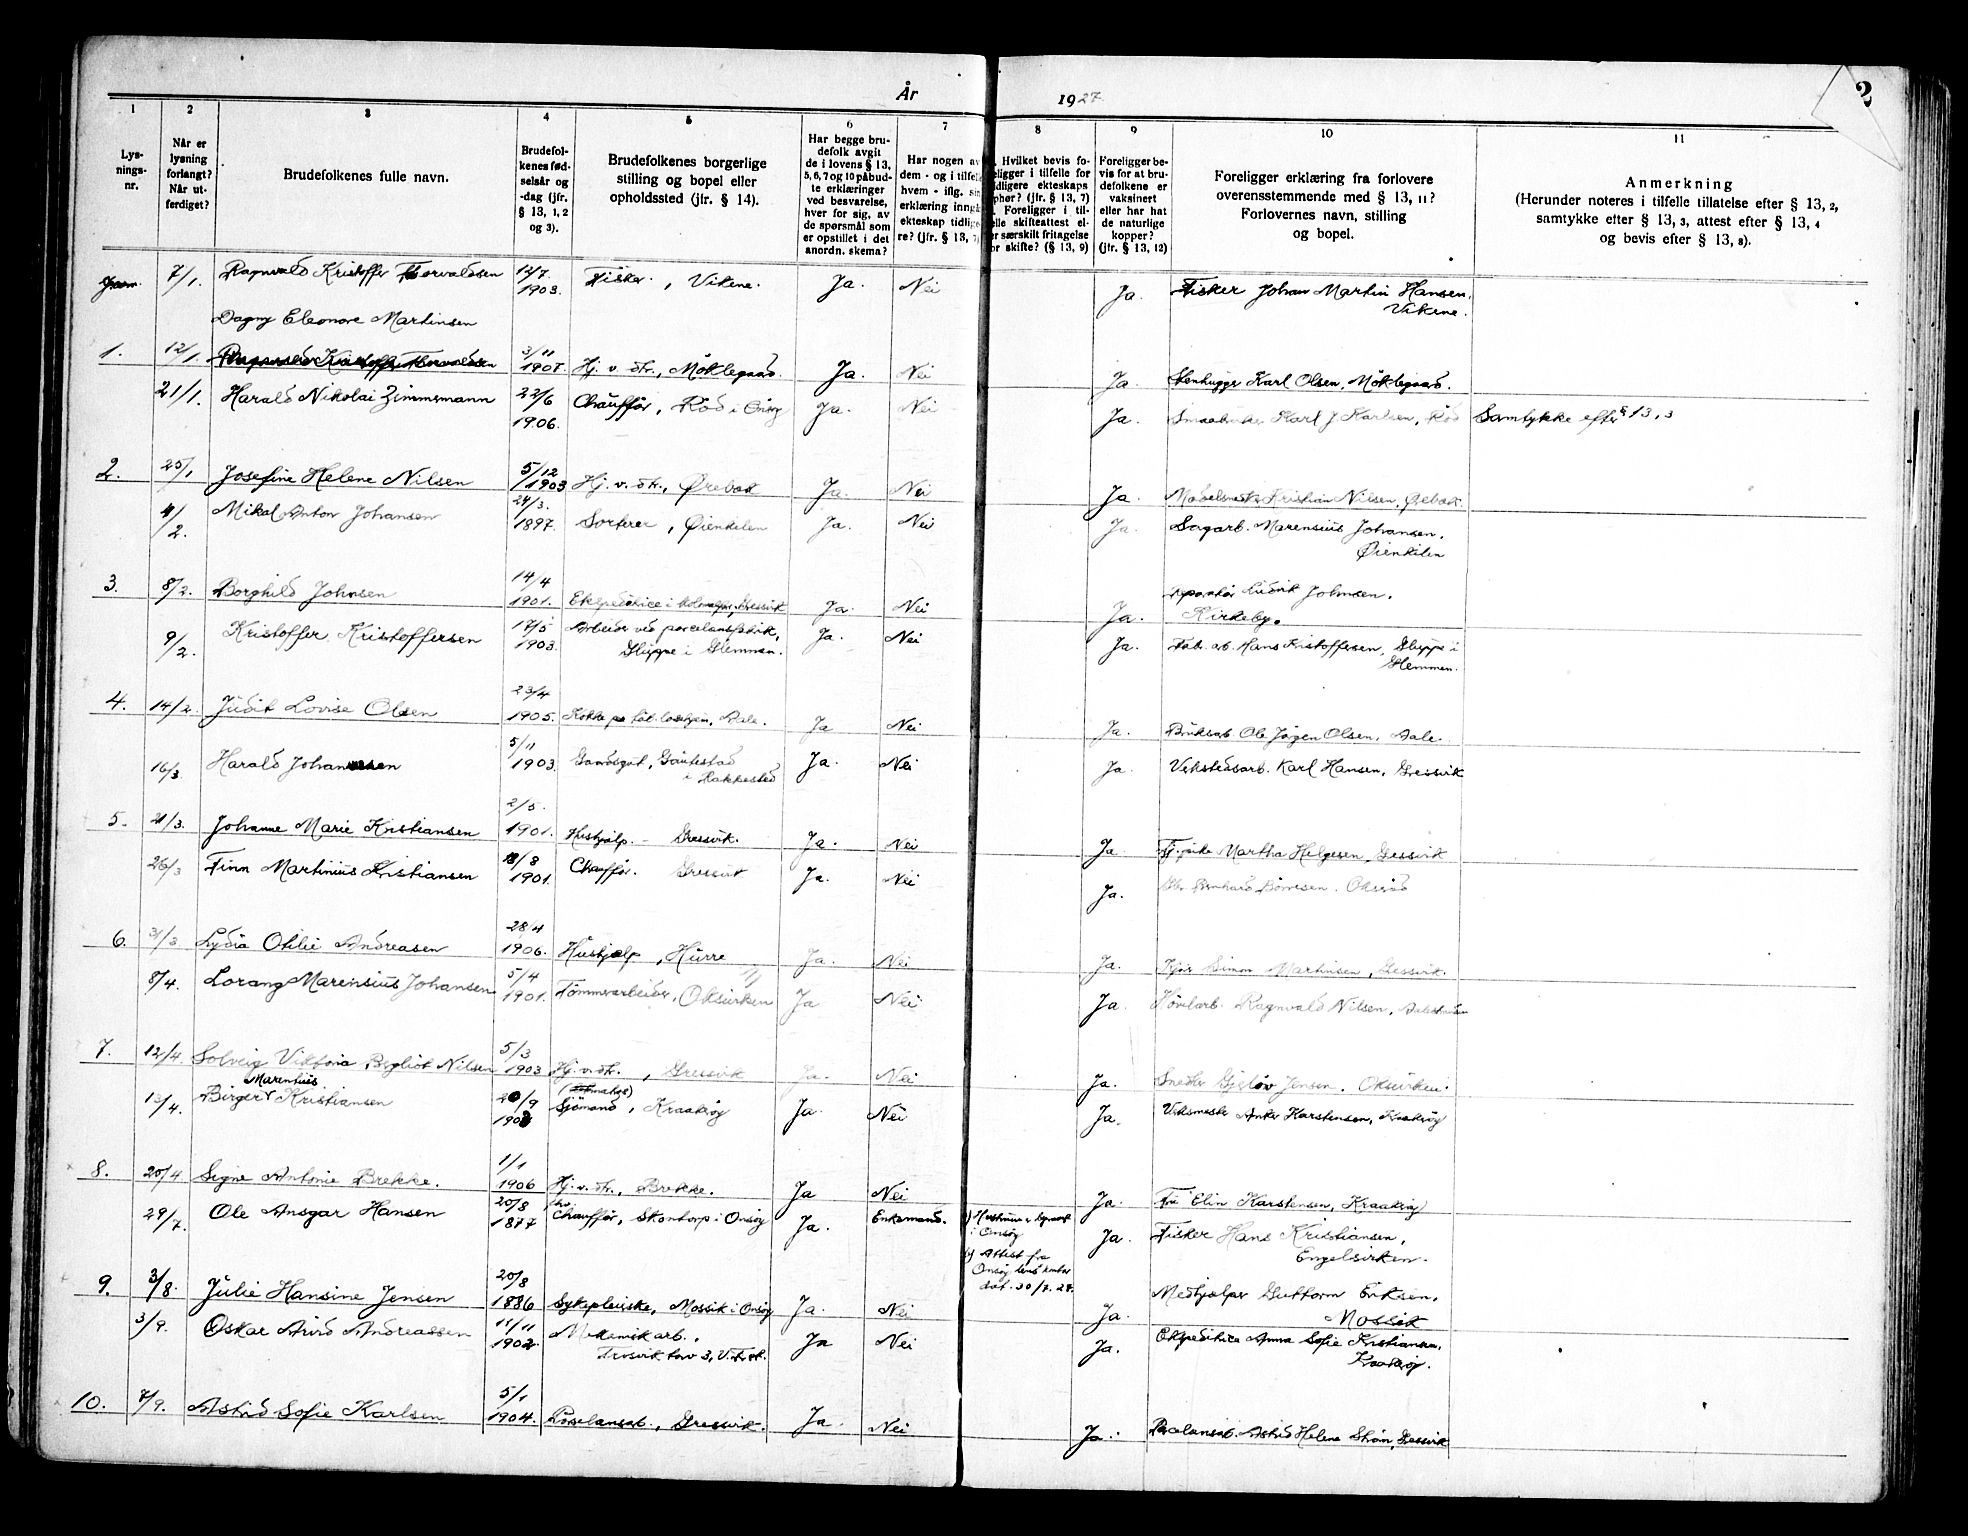 År 1927. 2
1 2 3 4 5 6 7 8 9 10 11
Lys-
nings-
nr.
Når er
lysning
forlangt?
Når ut-
ferdiget?
Brudefolkenes fulle navn.
Brudefol-
kenes fød-
selsår og
-dag (jfr.
§ 13, 1, 2
og 3).
Brudefolkenes borgerlige
stilling og bopel eller
opholdssted (jfr. § 14).
Har begge bru-
defolk avgit
de i lovens § 13,
5, 6, 7 og 10 påbud-
te erklæringer
ved besvarelse,
hver for sig, av
de spørsmål som
er opstillet i det
anordn. skema?
Har nogen av
dem - og i tilfelle
hvem - iflg. sin
erklæring inngå
ekteskap tidlige
re? (jfr. § 13, 7)
Hvilket bevis fo-
eligger i tilfelle for
idligere ekteskaps
phør? (jfr. § 13, 7)
. Foreligger i til-
elle skifteattest el-
er særskilt fritagelse
or skifte? (§ 13, 9)
Foreligger be-
vis for at bru-
defolkene er
vaksinert
eller har hat
de naturlige
kopper?
(jfr. § 13, 12)
Foreligger erklæring fra forlovere
overensstemmende med § 13, 11?
Forlovernes navn, stilling
og bopel.
Anmerkning
(Herunder noteres i tilfelle tillatelse efter § 13, 2,
samtykke efter § 13, 3, attest efter § 13, 4
og bevis efter § 13, 8).
7/1. Ragnvald Kristoffer Thorvaldsen 12/7. 1903. Fisker, Vikene. Ja. Nei Ja. Fisker Johan Martin Hansen,
Vikene.
Dagny Eleonore Martinsen
1. 12/1. 3/11 1907. Hj. v. str., Møklegaard. Ja. Nei Ja. Stenhugger Karl Olsen, Møklegaard.
21/1. Harald Nikolai Zimmermann 22/6 1906. Chauffør, Rød i Onsøy Ja. Nei Ja. Smaabruker Karl J. Karlsen, Rød Samtykke efter § 13, 3
2. 25/1 Josefine Helene Nilsen 5/12 1903 Hj. v. str., Ørebæk Ja. Nei Ja. Kristian Nilsen, Ørebæk.
4/2. Mikal Anton Johansen 24/3. 1897. Sorterer, Øienkilen Ja. Nei Ja. Sagarb. Marensius Johansen,
Øienkilen
3. 8/2. Borghild Johnsen 14/4 1901. Ekspeditrice i Gressvik Ja. Nei Ja. Ludvik Johnsen,
Kirkeby.
9/2. Kristoffer Kristoffersen 17/5 1903. Arbeider ved porcelænsfabrik,
Gluppe i Glemmen. Ja. Nei Ja. Fabr. arb. Hans Kristoffersen, Gluppe i
Glemmen.
4. 14/2. Judit Lovise Olsen 23/4 1905. Kokke pa Aale. Ja Nei Ja. Bruksarb Ole Jørgen Olsen, Aale.
16/3. Harald Johannesen 5/11 1903. Gaardsgut, Gautestad
i Rakkestad Ja. Nei Ja. Verkstedsarb. Karl Hansen, Gressvik
5. 21/3. Johanne Marie Kristiansen 2/5. 1901. Hushjælp. - Gressvik. Ja. Nei Ja. Martha Helgesen, Gressvik
26/3 Finn Martinius Kristiansen 18/8 1901. Chauffør. Gressvik Ja. Nei Ja.
6. 31/3 Lydia Otilie Andreasen 28/4 1906. Hushjælp, Hurre Ja. Nei Ja. Simon Martinsen, Gressvik.
8/4. Lorang Marensius Johansen 5/4 1901. Tømmerarbeider, Oksviken Ja Nei Ja. Høvlarb. Ragnvald Nilsen,
7. 12/4. Solveig Viktoria Bergliot Nilsen 5/3 1903 Hj. v. str., Gressvik Ja. Nei Ja. Jensen. Oksviken.
13/4. Birger Marentius Kristiansen 20/9 Sjømand, Kraakrøy Ja. Nei Ja. Anker Karstensen, Kraakrøy
8. 20/4 Signe Antonie Brekke. 1/1 1906 Hj. v. str., Brekke. Ja Nei Ja. Fru Elin Karstensen, Kraakrøy
29/7. Ole Ansgar Hansen 20/8 1877 Chauffør, Skontorp i Onsøy Ja. Enkemand. i Onsøy
b) Attest fra
Onsøy lensmand
dat. 30/7. 27. Ja. Fisker Hans Kristiansen,
Engelsviken.
9. 3/8. Julie Hansine Jensen 20/8 1886 Sykepleierske, Mossik i Onsøy Ja. Nei Ja. Medhjælper Guttorm Eriksen,
Mossik
3/9. Oskar Arvid Andreassen 11/11 1902 Mekanisk arb.,
Trosvik torv 3, Ja Nei Ja. Ekspeditrice Anna Sofie Kristiansen,
Kraakrøy.
10. 7/9. Astrid Sofie Karlsen 5/1 1904. Porselansarb., Gressvik. Ja. Nei Ja. Porcelansarb. Astrid Helene Strøm, Gressvik